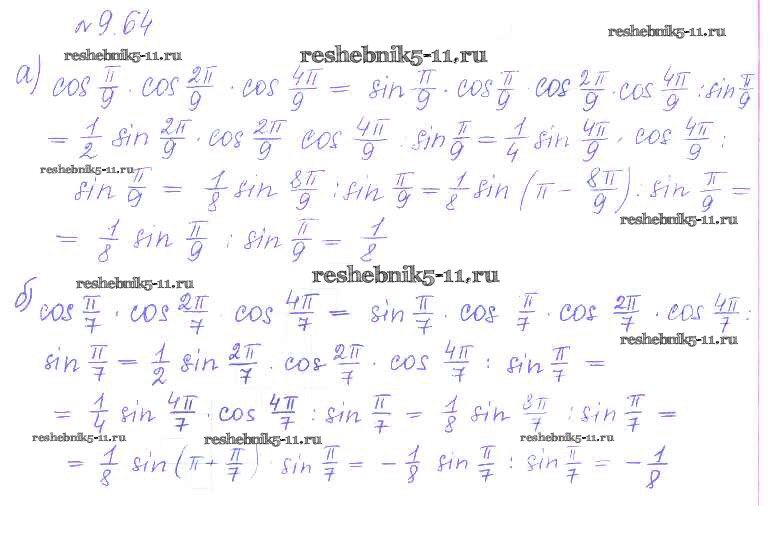 №9.64
reshebnik5-11.ru reshebnik5-11.ru reshebnik5-11.ru
а) cos π/9 · cos 2π/9 · cos 4π/9 = sin π/9 · cos π/9 · cos 2π/9 · cos 4π/9 : sin π/9
= 1/2 sin 2π/9 · cos 2π/9 cos 4π/9 : sin π/9 = 1/4 sin 4π/9 · cos 4π/9 :
reshebnik5-11.ru
sin π/9 = 1/8 sin 8π/9 : sin π/9 = 1/8 sin (π - 8π/9) : sin π/9 =
reshebnik5-11.ru
= 1/8 sin π/9 : sin π/9 = 1/8
reshebnik5-11.ru reshebnik5-11.ru
б) cos π/7 · cos 2π/7 · cos 4π/7 = sin π/7 · cos π/7 · cos 2π/7 · cos 4π/7 :
reshebnik5-11.ru
sin π/7 = 1/2 sin 2π/7 · cos 2π/7 · cos 4π/7 : sin π/7 =
= 1/4 sin 4π/7 · cos 4π/7 : sin π/7 = 1/8 sin 8π/7 : sin π/7 =
reshebnik5-11.ru reshebnik5-11.ru reshebnik5-11.ru
= 1/8 sin (π + π/7) : sin π/7 = - 1/8 sin π/7 : sin π/7 = - 1/8